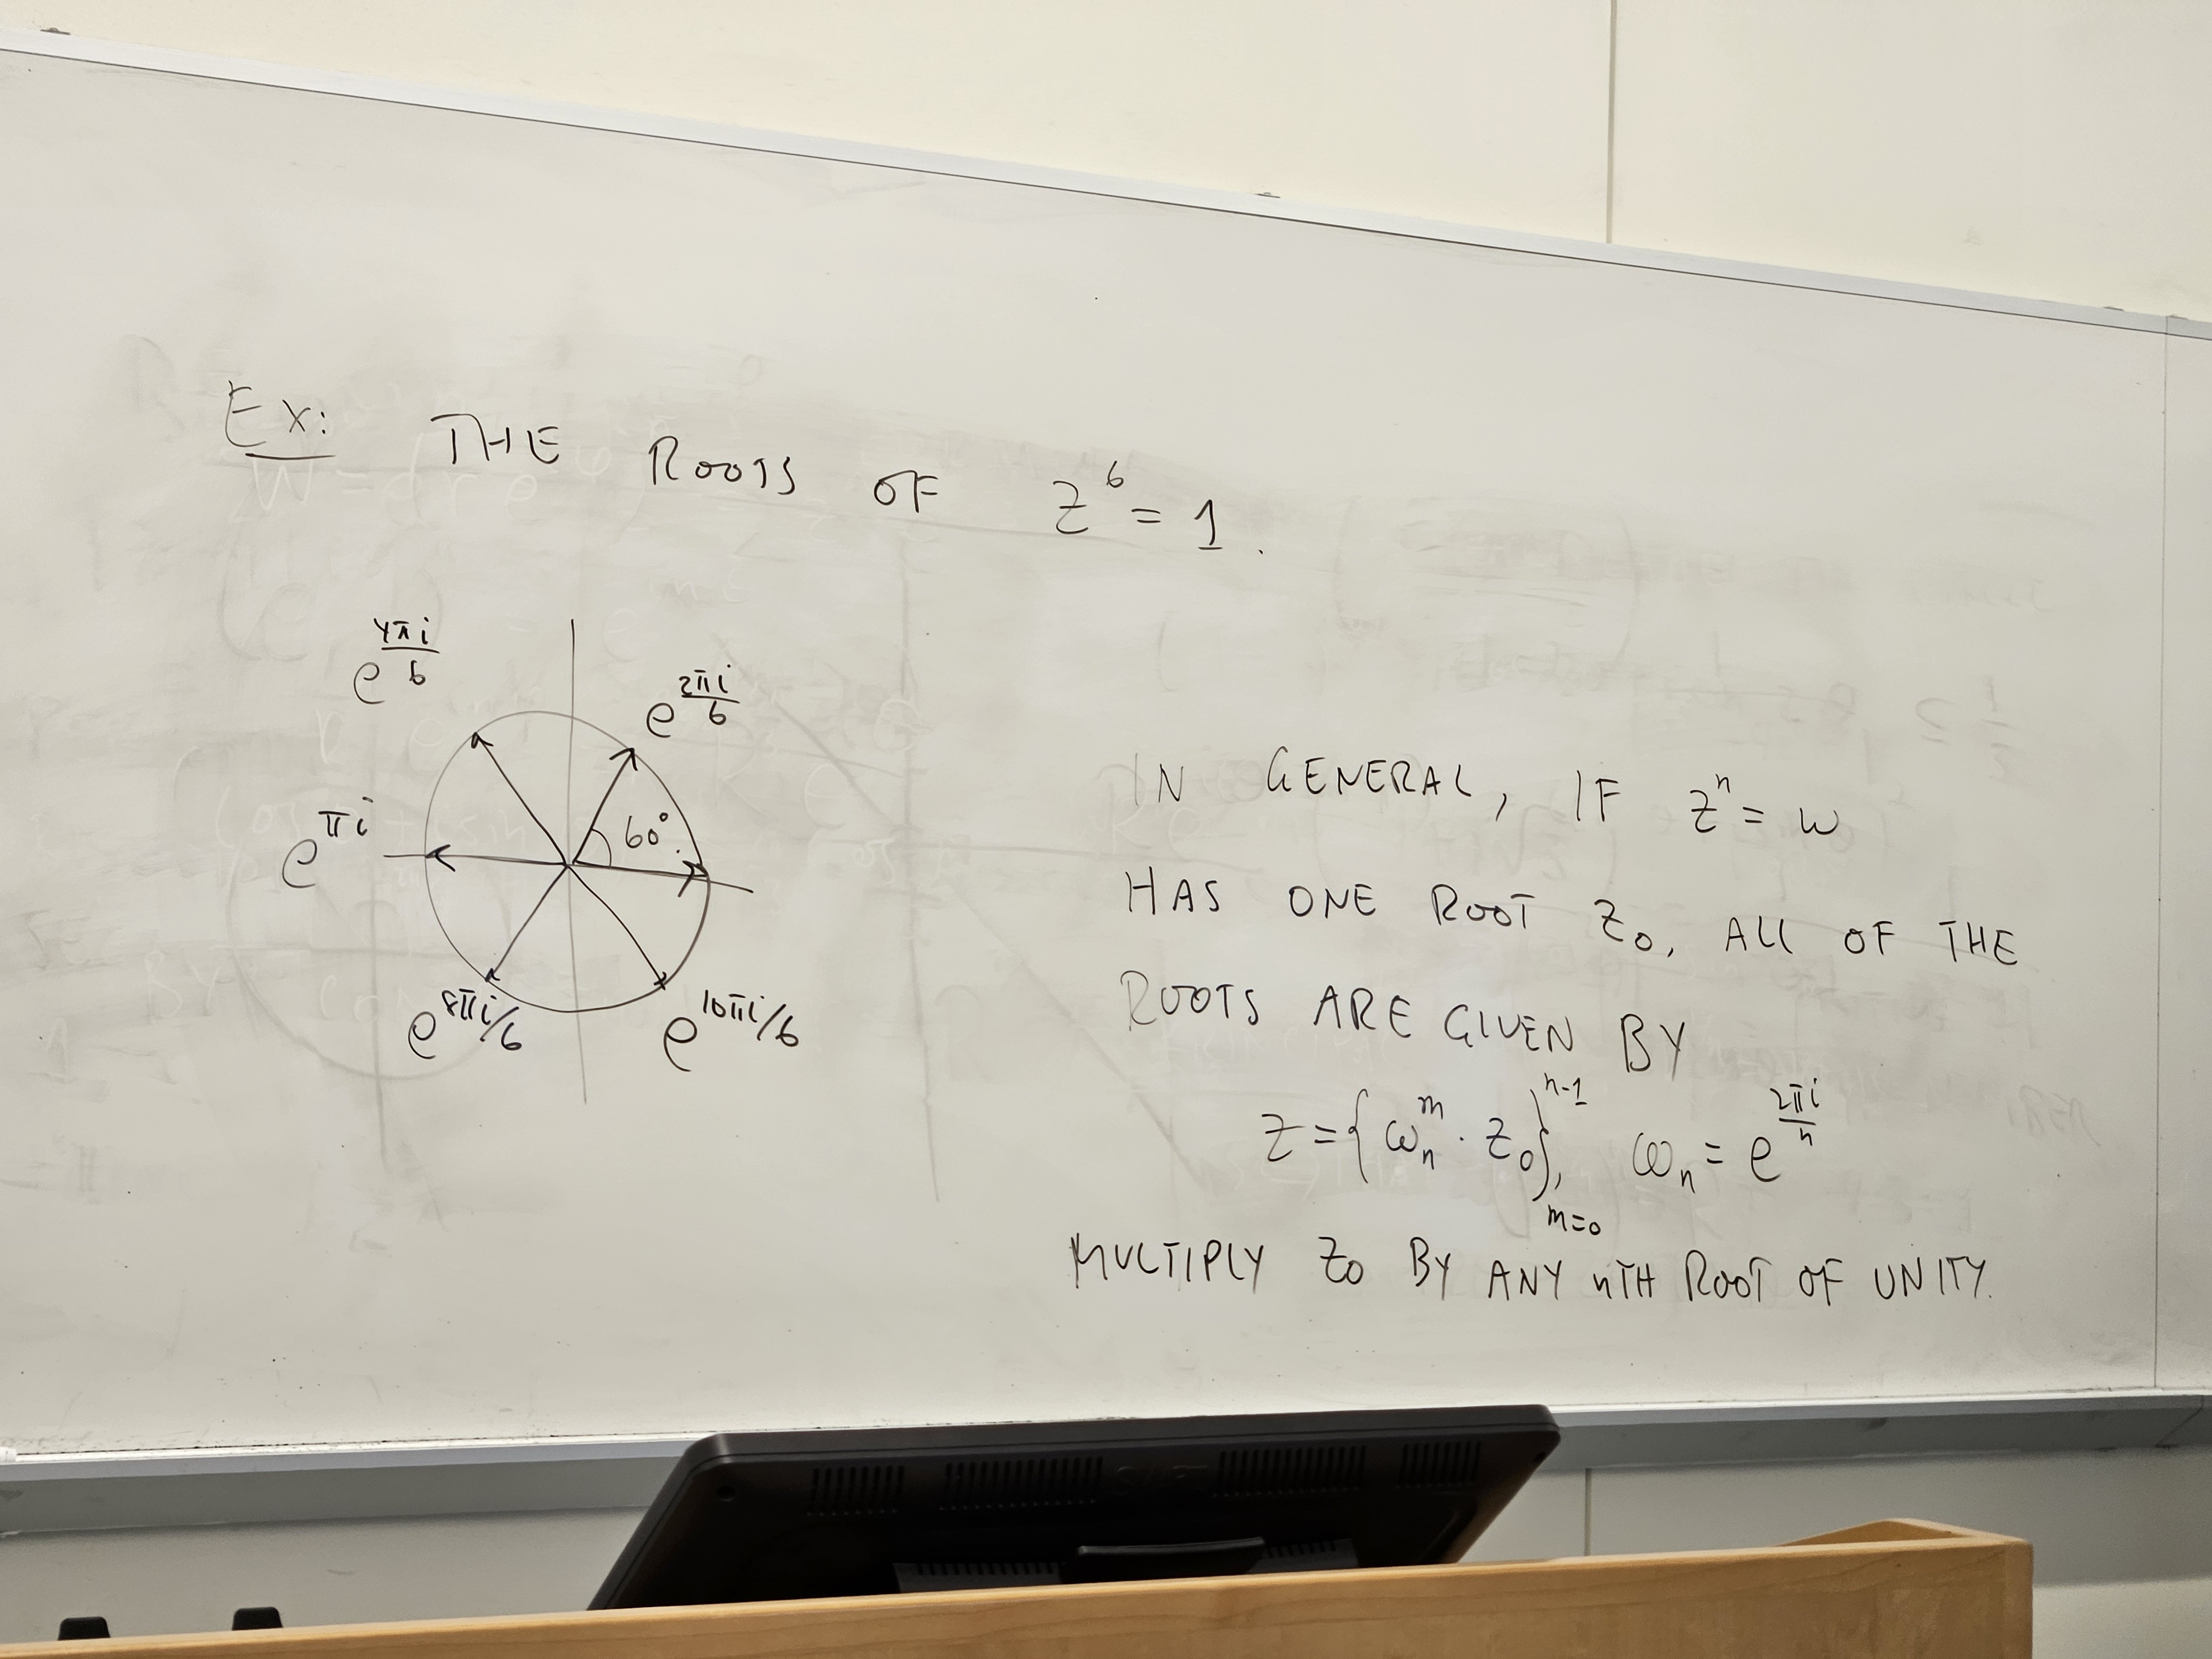 Ex: THE ROOTS OF z^6 = 1.
e^{4πi/6}
e^{2πi/6}
e^{πi}
60°
e^{8πi/6}
e^{10πi/6}
IN GENERAL, IF z^n = w
HAS ONE ROOT z_0, ALL OF THE
ROOTS ARE GIVEN BY
z = {ω_n^m · z_0}_{m=0}^{n-1}, ω_n = e^{2πi/n}
MULTIPLY z_0 BY ANY nTH ROOT OF UNITY.